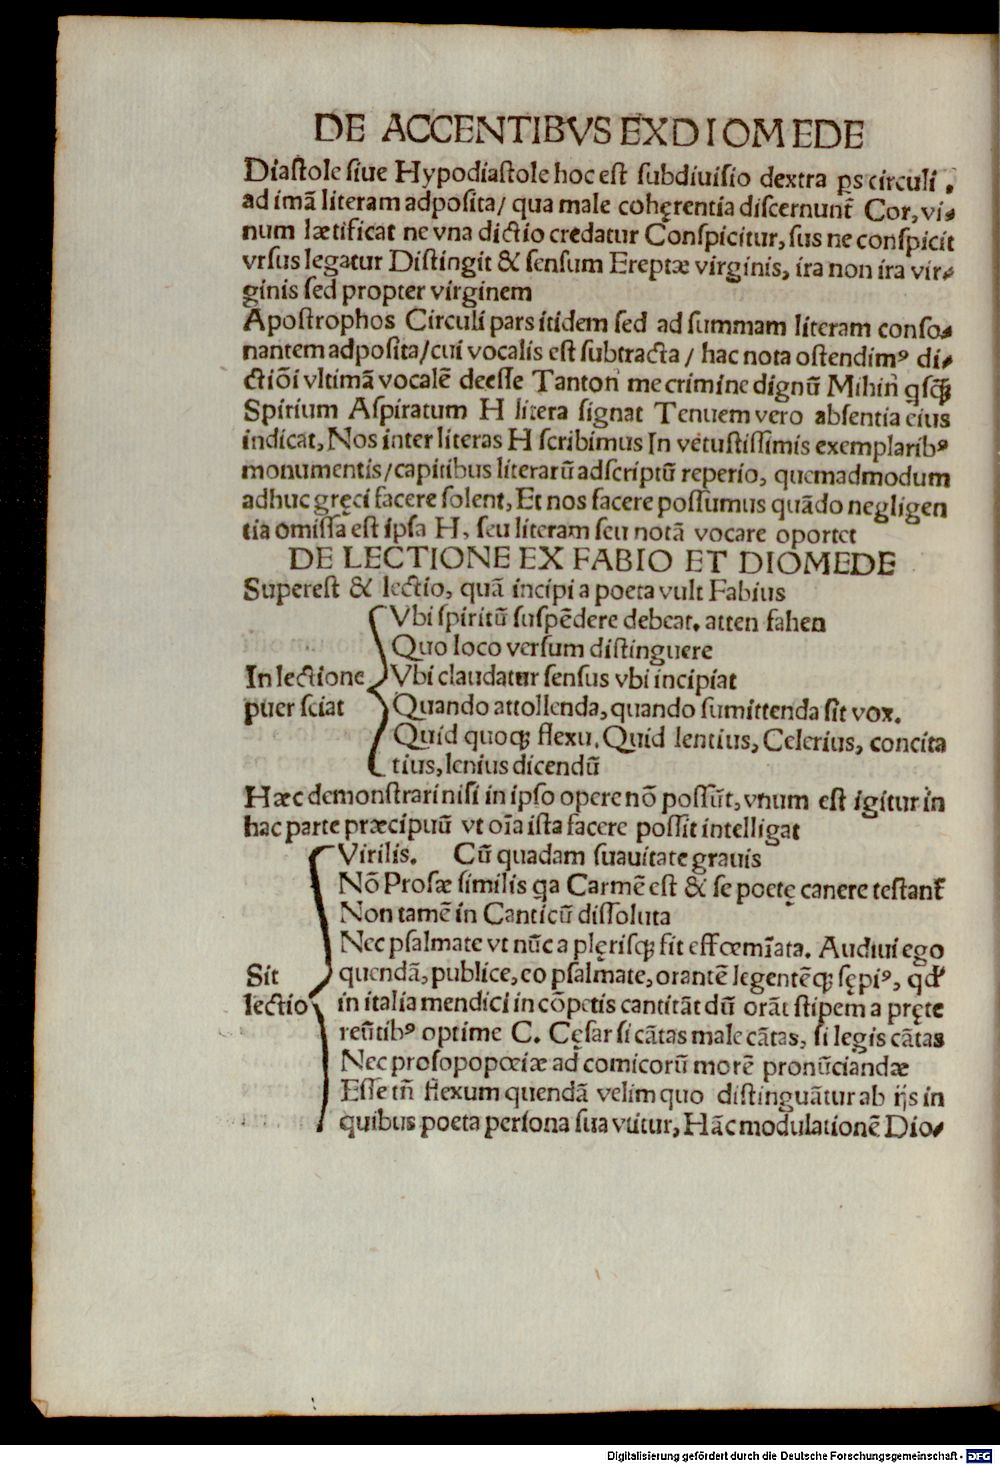 DE ACCENTIBVS EXDIOMEDE
Diaſtole ſiue Hypodiaſtole hoc eſt ſubdiuiſio dextra ꝑs circuli .
ad imā literam adpoſita/ qua male cohęrentia diſcernunt̄ Cor, vi⸗
num lætificat ne vna dictio credatur Conſpicitur, ſus ne conſpicit
vrſus legatur Diſtingit & ſenſum Ereptæ virginis, ira non ira vir⸗
ginis ſed propter virginem
Apoſtrophos Circuli pars itidem ſed ad ſummam literam conſo⸗
nantem adpoſita/cui vocalis eſt ſubtracta / hac nota oſtendimꝰ di⸗
ctiōi vltimā vocalē deeſſe Tanton̍ me crimine dignū Mihin̍ qſꝗ̄
Spirium Aſpiratum H litera ſignat Tenuem vero abſentia eius
indicat, Nos inter literas H ſcribimus In vetuſtiſſimis exemplaribꝰ
monumentis/capitibus literarū adſcriptū reperio, quemadmodum
adhuc gręci facere ſolent, Et nos facere poſſumus quādo negligen
tia omiſſa eſt ipſa H, ſeu literam ſeu notā vocare oportet
DE LECTIONE EX FABIO ET DIOMEDE
Supereſt & lectio, quā incipi a poeta vult Fabius
Vbi ſpiritū ſuſpēdere debeat. atten fahen
Quo loco verſum diſtinguere
In lectione Vbi claudatur ſenſus vbi incipiat
puer ſciat Quando attollenda, quando ſumittenda ſit vox.
Quid quoqꝫ flexu. Quid lentius, Celerius, concita
tius, lenius dicendū
Hæc demonſtrari niſi in ipſo opere nō poſſūt, vnum eſt igitur in
hac parte præcipuū vt oīa iſta facere poſſit intelligat
Virilis. Cū quadam ſuauitate grauis
Nō Proſæ ſimilis qa Carmē eſt & ſe poetę canere teſtant̄
Non tamē in Canticū diſſoluta
Nec pſalmate vt nūc a plęriſqꝫ fit effœmīata. Audiui ego
Sit quendā, publice, eo pſalmate, orantē legentēqꝫ ſępiꝰ, qd̛
lectio in italia mendici in cōpetis cantitāt dū orāt ſtipem a pręte
reūtibꝰ optime C. Cęſar ſi cātas male cātas, ſi legis cātas
Nec proſopopœiæ ad comicorū morē pronūciandæ
Eſſe tn̄ flexum quendā velim quo diſtinguātur ab ijs in
quibus poeta perſona ſua vtitur, Hāc modulationē Dio⸗
Digitalisierung gefördert durch die Deutsche Forschungsgemeinschaft - DFG